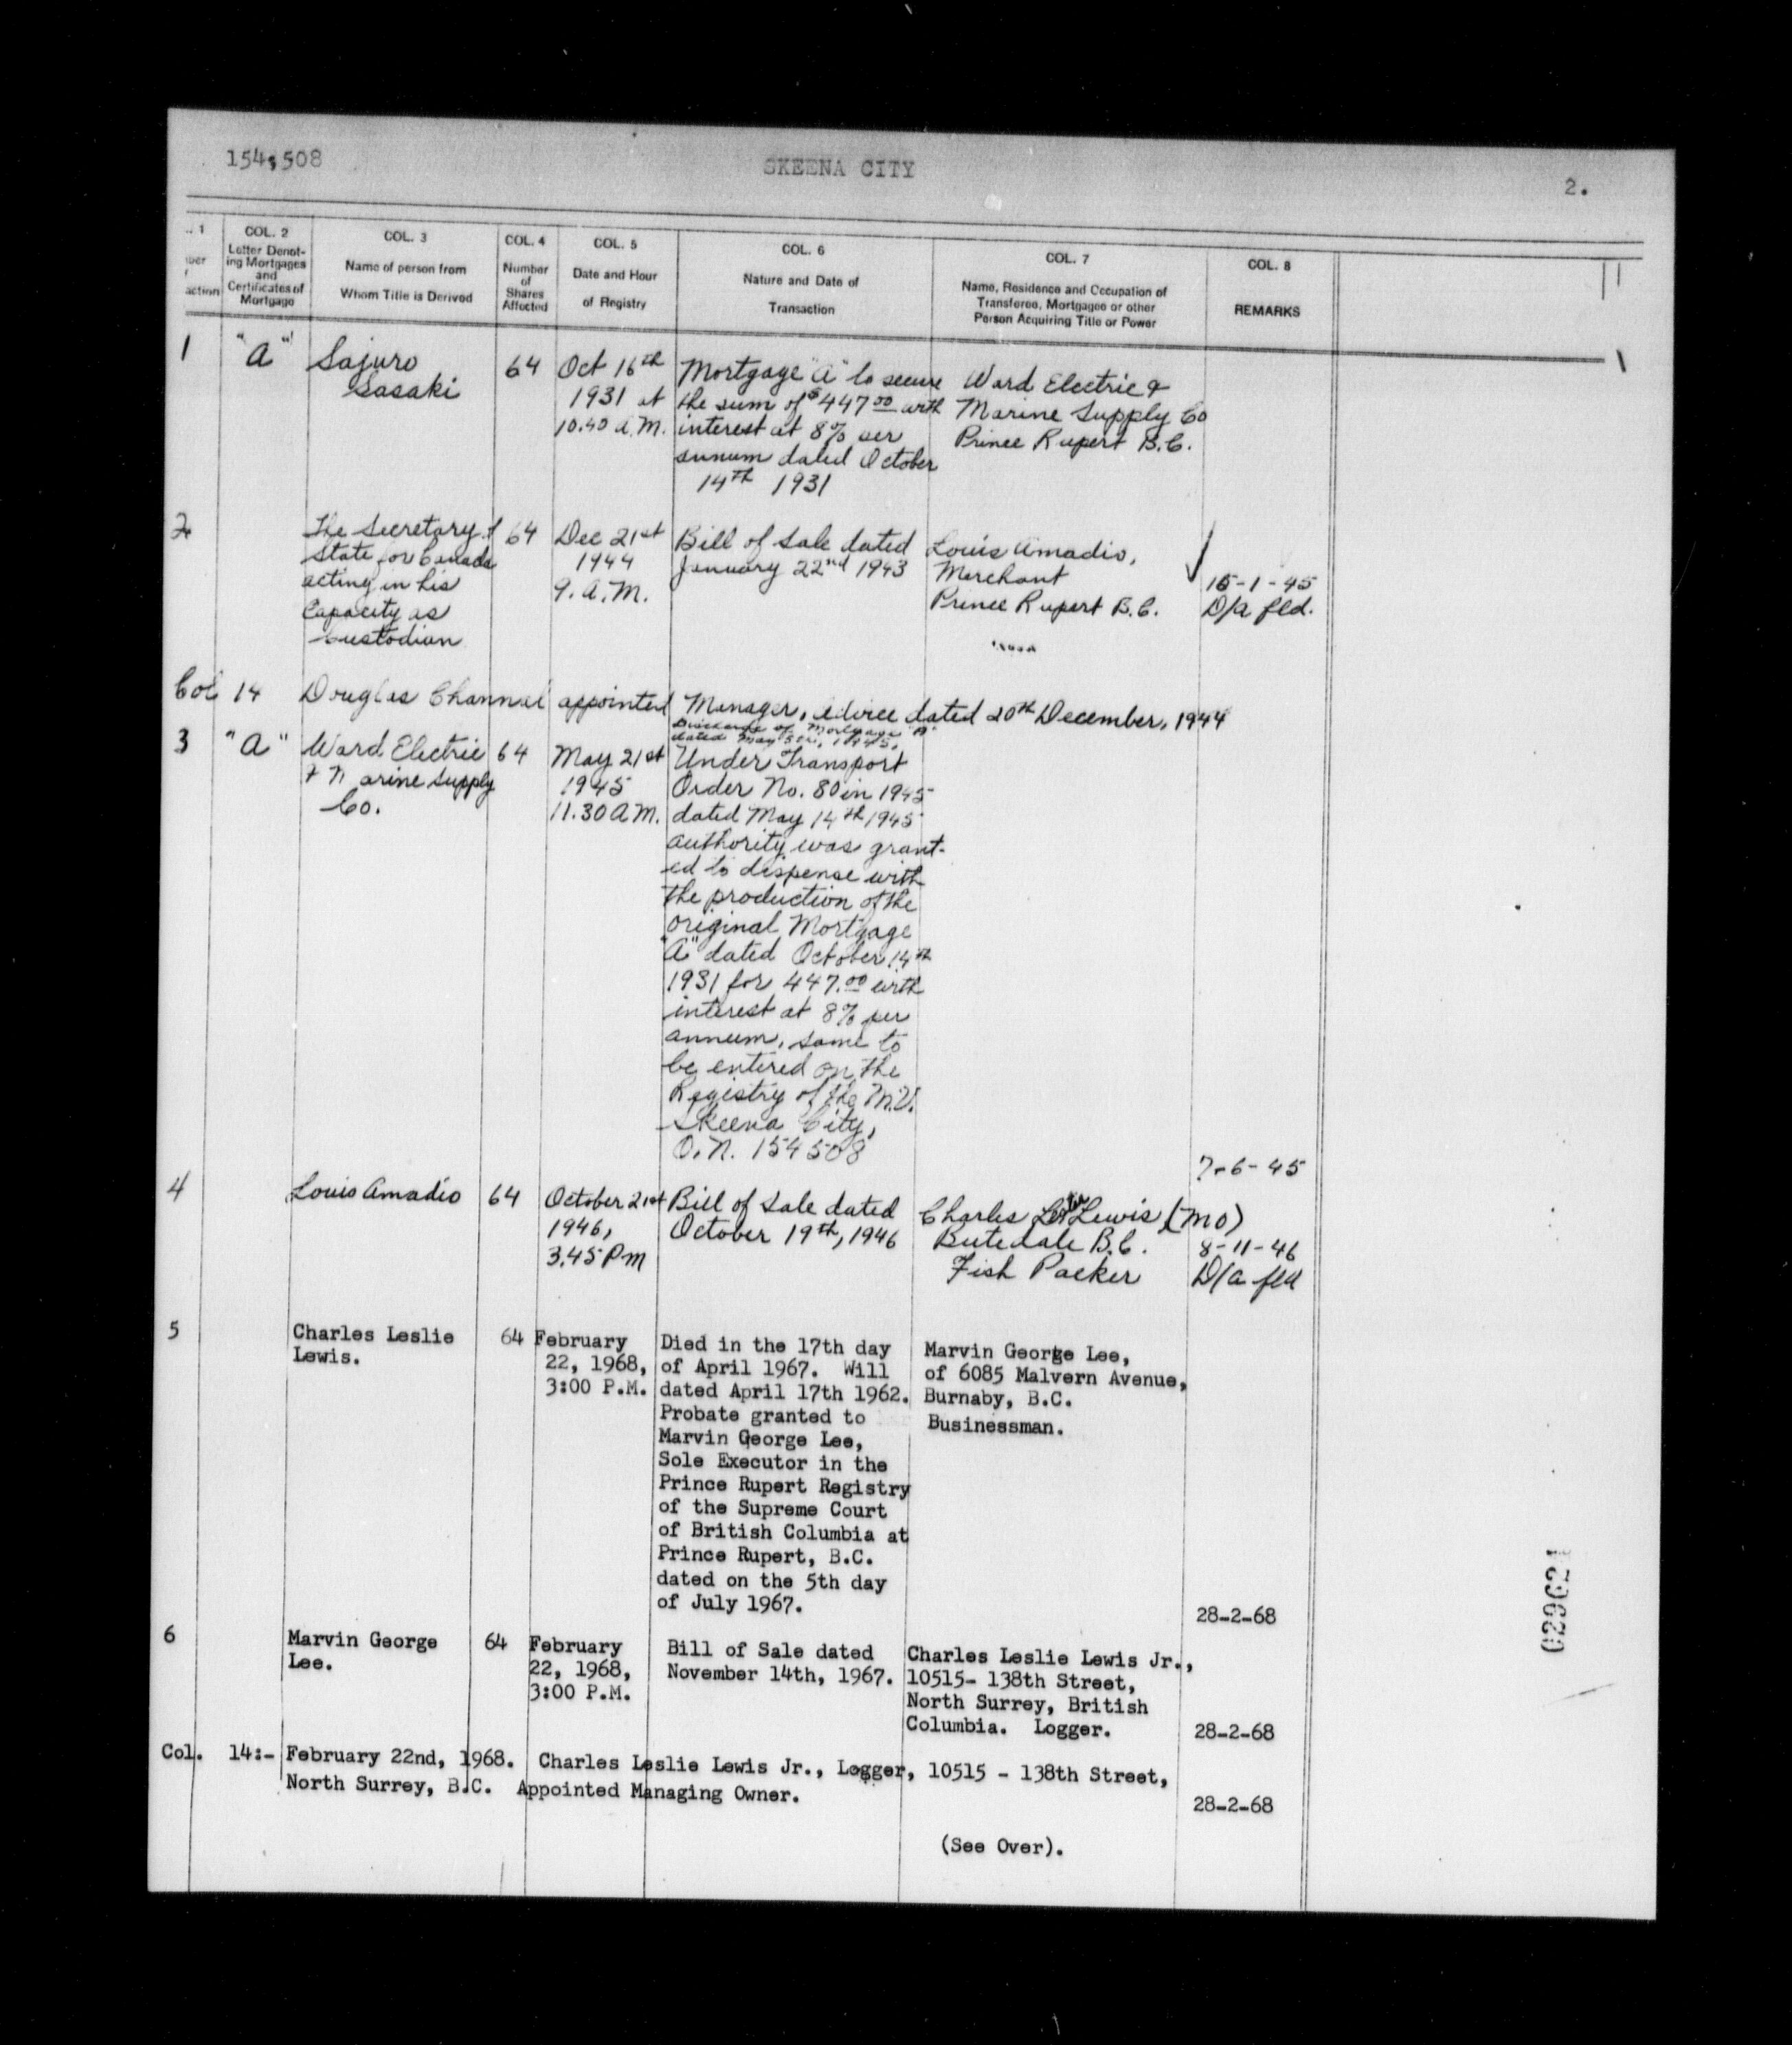 154,508
SKEENA CITY
2.
COL. 2
Letter Denot-
ing Mortgages
and
Certificates of
Mortgage
COL. 3
Name of person from
Whom Title is Derived
COL. 4
Number
of
Shares
Affected
COL. 5
Date and Hour
of Registry
COL. 6
Nature and Date of
Transaction
COL. 7
Name, Residence and Occupation of
Transferee, Mortgagee or other
Person Acquiring Title or Power
COL. 8
REMARKS
1
"A"
Sajuro
Sasaki
64
Oct 16th
1931 at
10.40 A.M.
Mortgage "A" to secure
the sum of $447.00 with
interest at 8% per
annum dated October
14th 1931
Ward Electric &
Marine Supply Co
Prince Rupert B.C.
2
The Secretary of
State for Canada
acting in his
Capacity as
Custodian
64
Dec 21st
1944
9. A.M.
Bill of Sale dated
January 22nd 1943
Louis Amadio,
Merchant
Prince Rupert B.C.
15-1-45
D/a fld.
Col 14 Douglas Channel appointed Manager, advice dated 20th December, 1944
3
"A"
Ward Electric
& Marine Supply
Co.
64
May 21st
1945
11.30 A.M.
Discharge of Mortgage "A"
dated May 5th, 1945.
Under Transport
Order No. 80 in 1945
dated May 14th 1945
authority was grant-
ed to dispense with
the production of the
original Mortgage
"A" dated October 14th
1931 for 447.00 with
interest at 8% per
annum, same to
be entered on the
Registry of the M.V.
Skeena City,
O.N. 154508
7-6-45
4
Louis Amadio
64
October 21st
1946,
3.45 P.M
Bill of Sale dated
October 19th, 1946
Charles Lewis (MO)
Butedale B.C.
Fish Packer
8-11-46
D/a fld
5
Charles Leslie
Lewis.
64
February
22, 1968,
3:00 P.M.
Died in the 17th day
of April 1967. Will
dated April 17th 1962.
Probate granted to
Marvin George Lee,
Sole Executor in the
Prince Rupert Registry
of the Supreme Court
of British Columbia at
Prince Rupert, B.C.
dated on the 5th day
of July 1967.
Marvin George Lee,
of 6085 Malvern Avenue,
Burnaby, B.C.
Businessman.
28-2-68
6
Marvin George
Lee.
64
February
22, 1968,
3:00 P.M.
Bill of Sale dated
November 14th, 1967.
Charles Leslie Lewis Jr.,
10515- 138th Street,
North Surrey, British
Columbia. Logger.
28-2-68
Col. 14:- February 22nd, 1968. Charles Leslie Lewis Jr., Logger, 10515 - 138th Street,
North Surrey, B.C. Appointed Managing Owner.
28-2-68
(See Over).